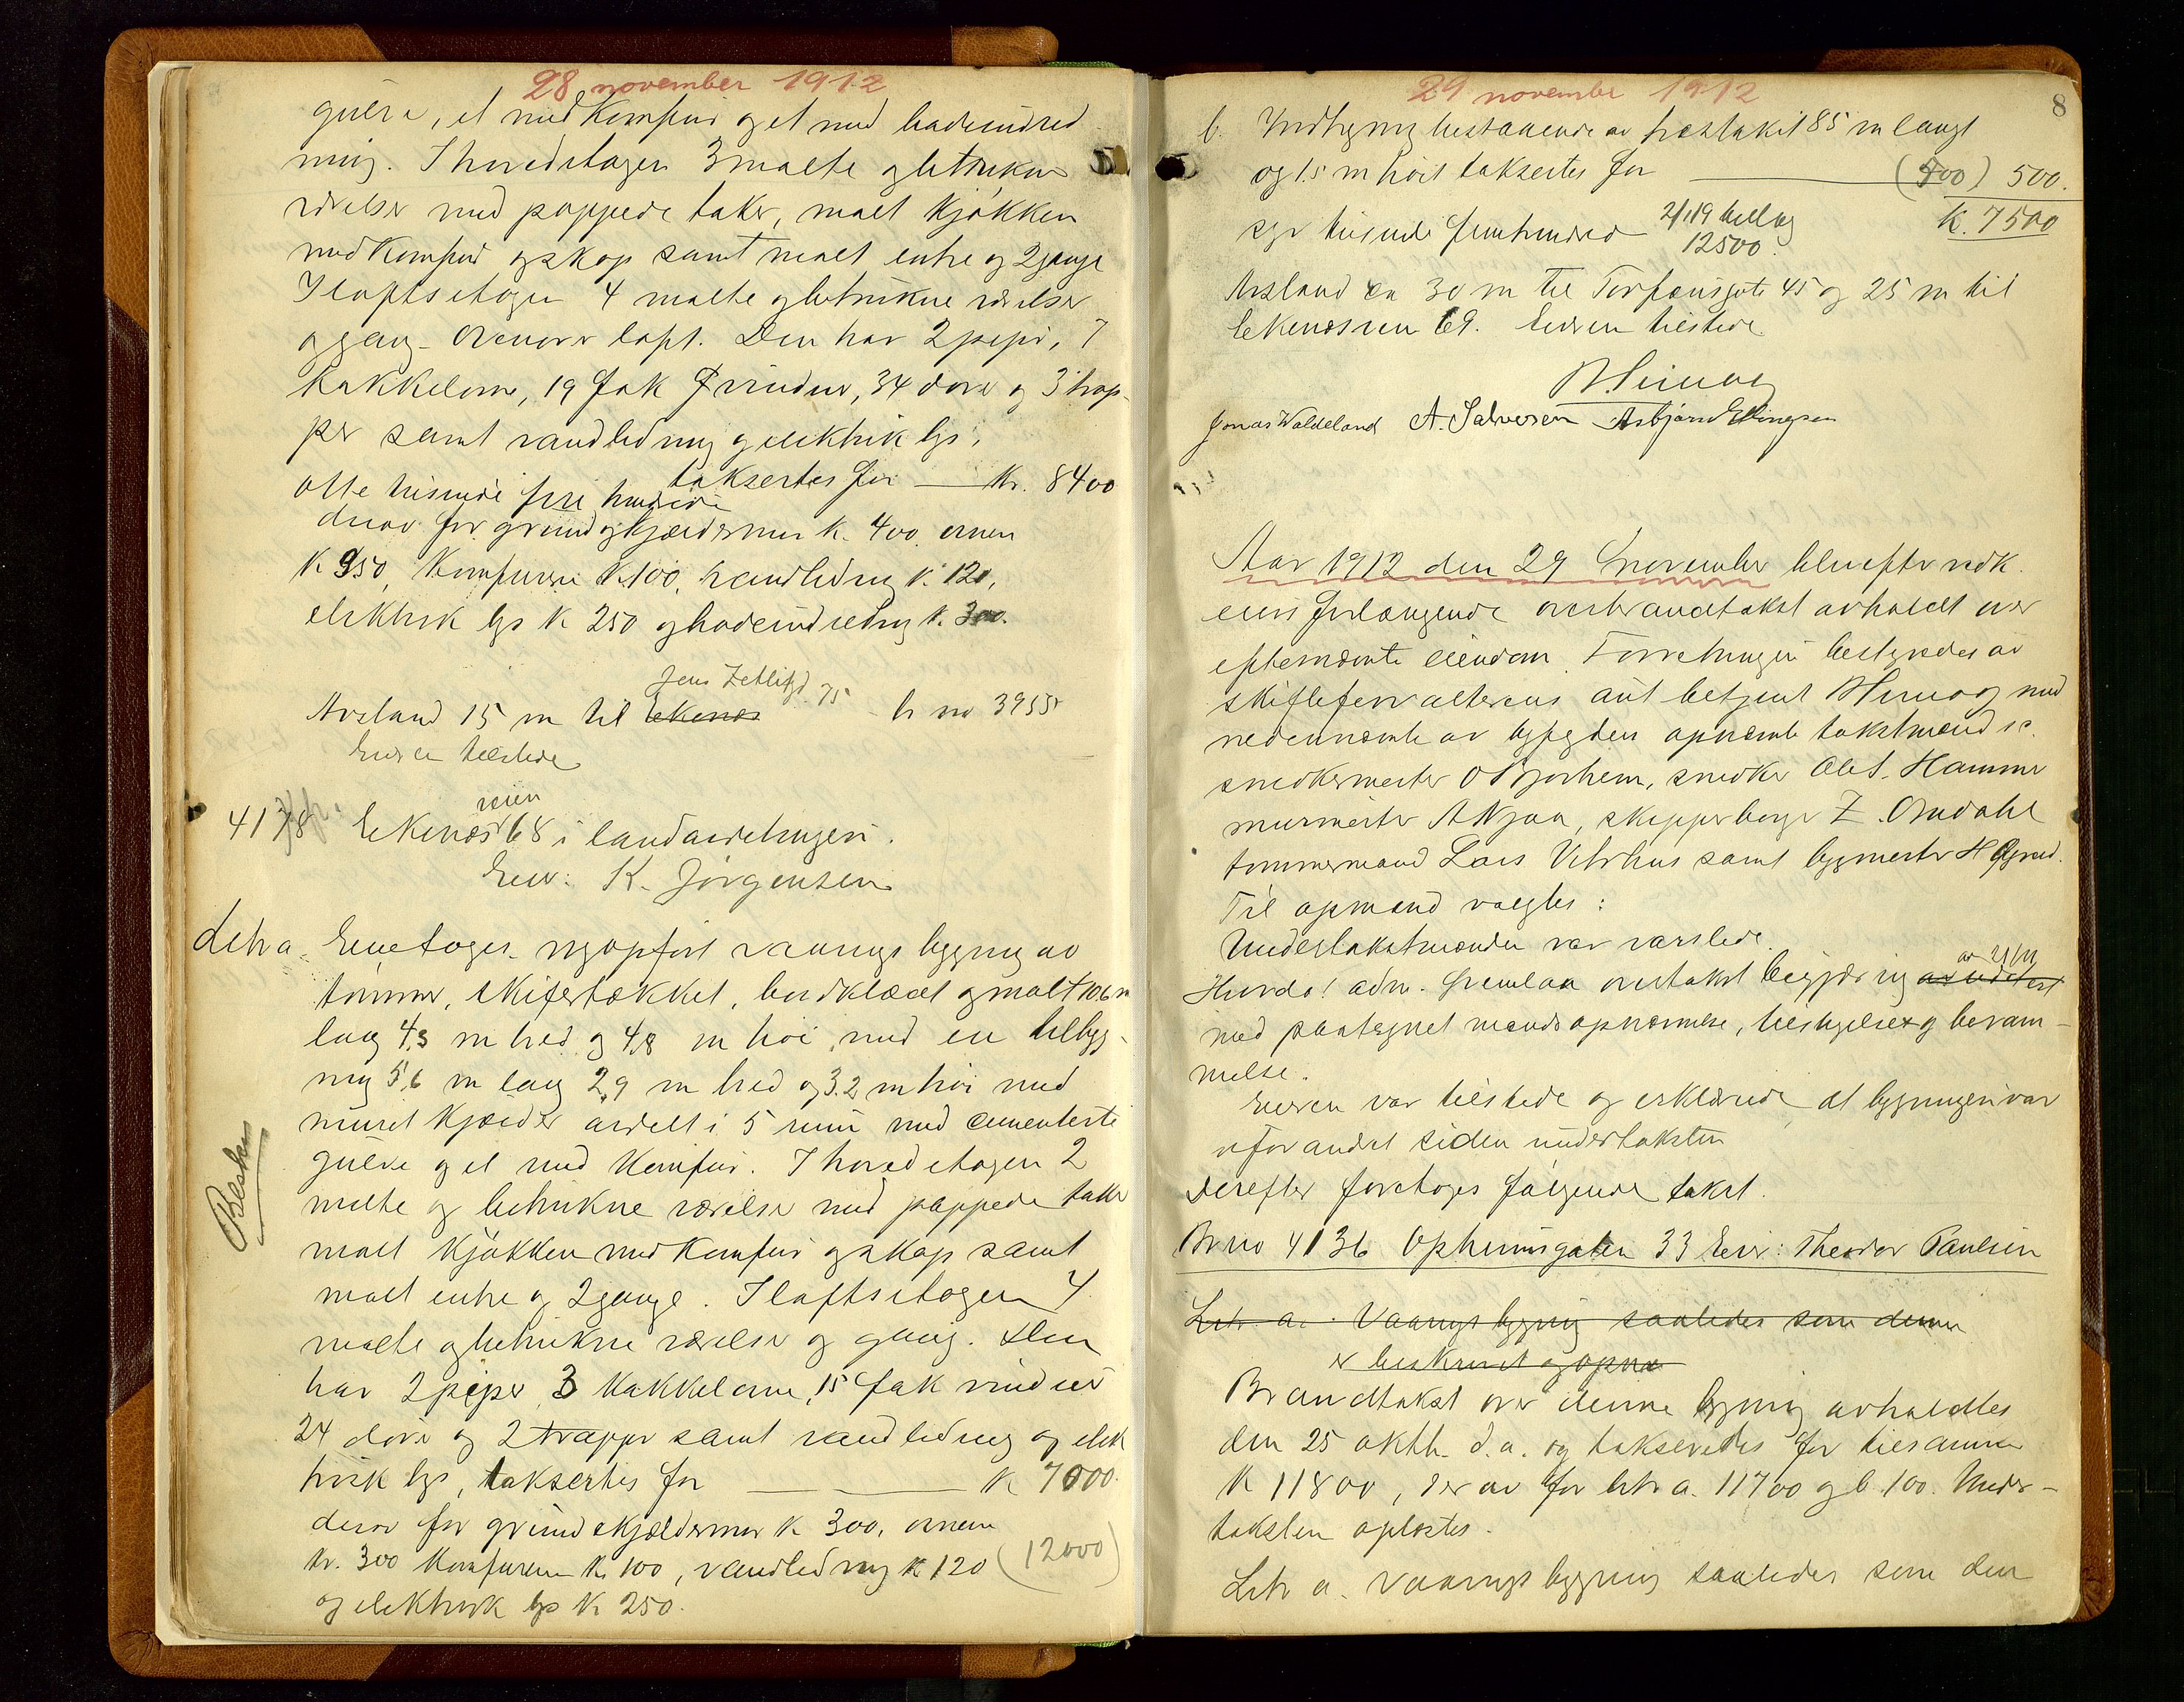 28 november 1912
gulve, et med Komfur og et med badeindred
ning. I hovedetagen 3 malte og betrukne
værelser med pappede taker, malt kjøkken
med Komfur og skap samt malt entre og 2 gange
I loftsetagen 4 malte og betrukne værelser
og gang. Ovenover loft. Den har 2 piper, 7
kakkelovne, 19 fak vinduer, 34 døre og 3 trap-
per samt vandledning og elektrisk lys,
taksertes for — Kr. 8400
otte tusinde fire hundrede
derav for grund og kjældermur k. 400, ovnen
K 950, Komfurene K 100, vandledning K. 120,
elektrisk lys K 250 og badeindredning K. 300.
Jens Zetlitzgt. 75
Avstand 15 m til Ekenæs br no 3955
Eieren tilstede
4178 Ekenæsveien 68 i landavdelingen.
Eier: K. Jörgensen
Litra a. Enetages nyopført vaaningsbygning av
tømmer, skifertækket, bordklædt og malt 10,6 m
lang 4,3 m bred og 4,8 m høi med en tilbyg-
ning 5,6 m lang 2,9 m bred og 3,2 m høi med
muret kjælder avdelt i 5 rum med cementerte
gulve og et med Komfur. I hovedetagen 2
malte og betrukne værelser med pappede taker
malt kjøkken med Komfur og skap samt
malt entre og 2 gange. I loftsetagen 4
malte og betrukne værelser og gang. Den
har 2 piper 3 kakkelovne, 15 fak vinduer
24 døre og 2 trapper samt vandledning og elek
trisk lys, taksertes for — K 7000.
derav for grund og kjældermur K 300, ovnene
Kr. 300 Komfurene K. 100, vandledning K 120 (12000)
og elektrisk lys K 250.
29 november 1912
8
b. Indhegning bestaaende av træstakit 85 m langt
og 1.5 m høit taksertes for — (500) 500.
K. 7500
syv tusinde femhundred 2/1 19 tillæg
12500.
Avstand ca 30 m til Torfæusgate 45 og 25 m til
Ekenæsveien 69. Eieren tilstede
Jonas Waldeland A. Salvesen Asbjørn Ellingsen
Aar 1912 den 29 november blev efter vedk.
eiers forlangende overbrandtakst avholdt over
eftернævnte eiendom. Forretningen bestyredes av
skifteforvalterens aut. betjent med
nedennævnte av byfogden opnævnte takstmænd
snedkermester O Bjorheim, snedker Ole S. Hammer
murmester A Njaa, skipperborger Z. Omdahl
tømmermand Lars Vetrhus samt bygmester H
Til opmand valgtes:
Undertakstmændene var varslede.
av 21/11
Hvorda! adm. fremlaa overtakst begjæring av utstedt
med paategnet mandsopnævnelse, bestyrelse og beram-
melse.
Eieren var tilstede og erklærede, at bygningen var
uforandret siden undertaksten
Derefter foretoges følgende takst.
Br no 4136 Opheimsgaten 33 Eier: Theodor Paulsen
Litr a. Vaaningsbygning saaledes som denne
er beskrevet og opna
Brandtakst over denne bygning avholdtes
den 25 oktbr. d.a. og takseredes for tilsammen
K 11800, derav for litr a. 11700 og b 100. Under-
taksten oplæstes.
Litr a. Vaaningsbygning saaledes som den